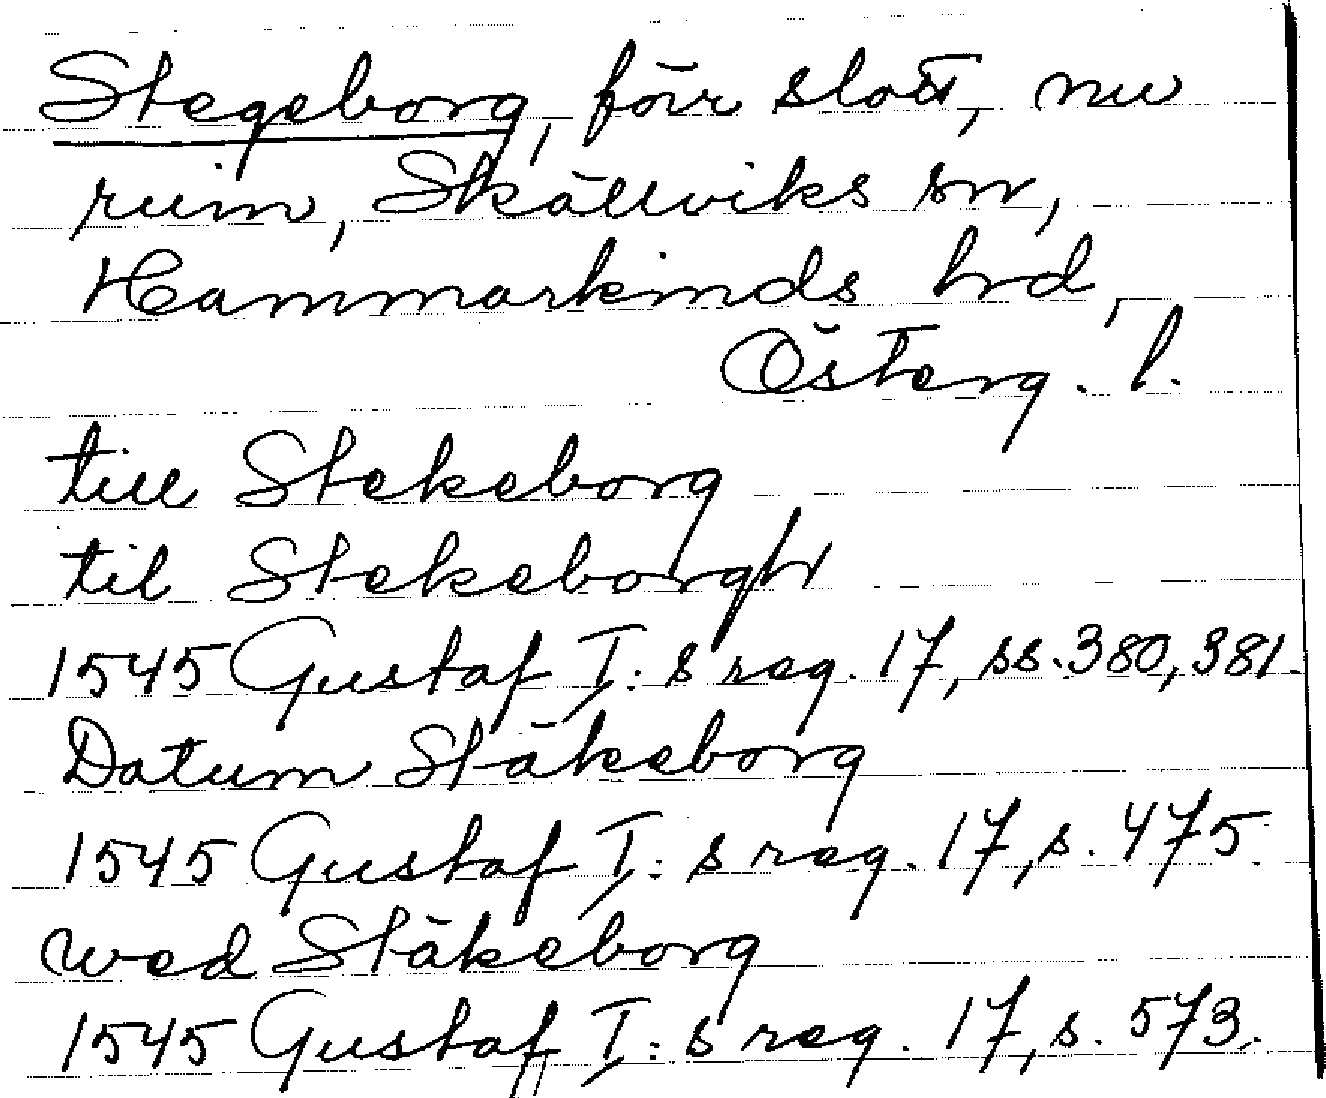 Stegeborg, förr slott, nu
ruin, Skällviks sn,
Hammarkinds hrd,
Österg. l.
till Stekeborg
til Stekeborgh
1545 Gustaf I:s reg. 17, ss. 380, 381.
Datum Stäkeborg
1545 Gustaf I:s reg. 17, s. 475.
wed Stäkeborg
1545 Gustaf I:s reg. 17, s. 573.